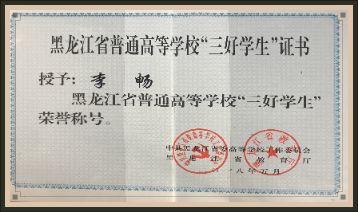 黑龙江省普通高等学校“三好学生”证书
授予：李 畅
黑龙江省普通高等学校“三好学生”
荣誉称号。
中共黑龙江省委高等学校工作委员会
黑龙江省教育厅
八年五月